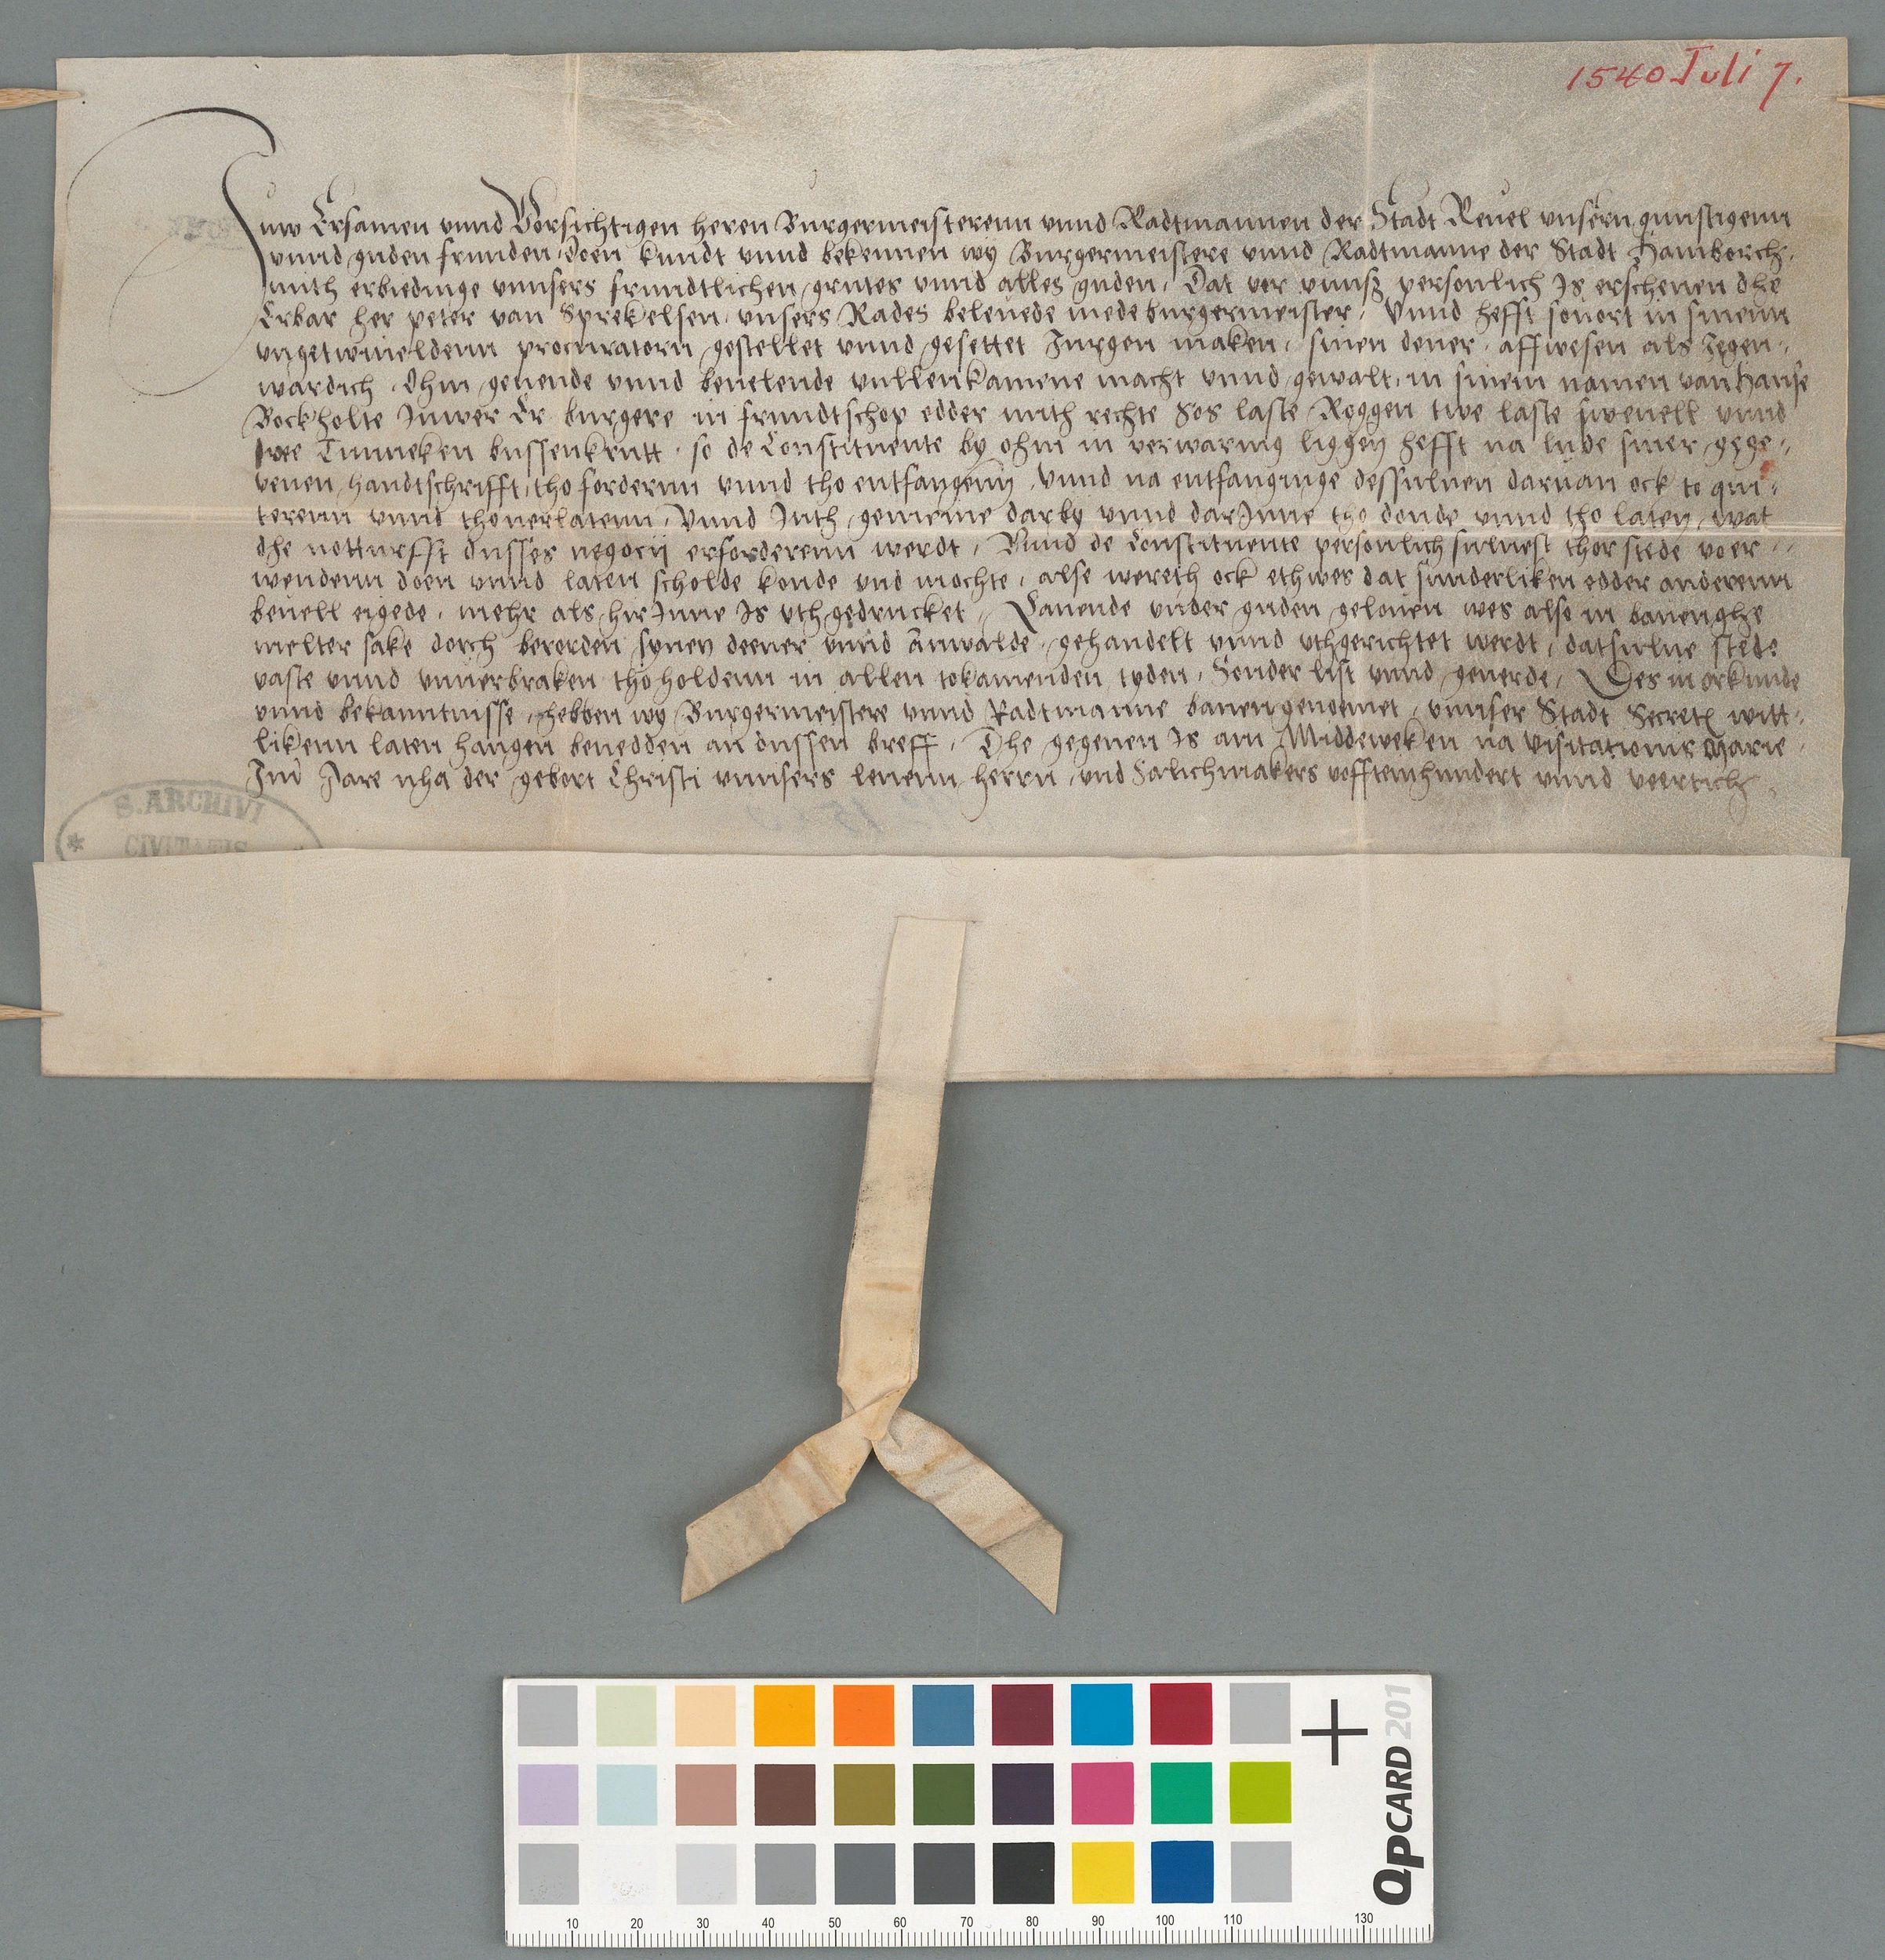 1540 Juli 7.
Juw Ersamen vnnd Vorsichtigen heren Burgermeisterenn vnnd Radtmannen der Stadt Reuel vnsern gunstigenn
vnnd guden frunden Doen kundt vnnd bekennen wy Burgermeistere vnnd Radtmanne der Stadt Hamborch.
mith erbiedinge vnnsers frundtlichen grutes vnnd alles guden, Dat vor vnnß personlich Is erschenen dhe
Erbar her peter van Sprekelsen vnsers Rades beleuede mede burgermeister, Vnnd hefft souort in sinenn
vngetwiueldenn procuratorn gestellet vnnd gesettet Jurgen maken, sinen dener, affwesen als Jegen-
wardich Ohm geuende vnnd beuelende vullenkamene macht vnnd gewalt, in sinem namen van Hanse
Bockholte Juwer Er burgere in frundtschop edder mith rechte Sos laste Roggen twe laste sweuell vnnd
twe Tunneken bussenkrutt so de Constituente by ohm in verwaring liggen hefft na lude siner gege-
uenen handtschrifft, tho fordernn vnnd tho entfangenn, vnnd na entfanginge dessuluen daruan ock to qui-
terenn vnnd thouerlatenn, Vnnd Inth gemeine darby vnnd darInne tho donde vnnd tho laten, wat
dhe notturfft dusses negocij erforderenn werdt, Vnnd de Constituente personlich suluest thor stede voer
wendenn doen vnnd laten scholde konde vnd mochte, alse wereth ock ethwes dat sunderliken edder anderenn
beuell eigede, mehr als hirInne Is vthgedrucket, Lauende vnder guden gelouen wes also in bauenghe
melter sake dorch berorden synen deener vnnd Anwalde, gehandelt vnnd vthgerichtet werdt, datsulue stede
vaste vnnd vnuerbraken tho holdenn in allen tokamenden tyden, Sonder list vnnd geuerde, Des in orkunde
vnnd bekanntnisse, hebben wy Burgermeistere vnnd Radtmanne bauengenomet, vnnser Stadt Secret witt-
likenn laten hangen benedden an dussen breff, Dhe gegeuen Is am Middeweken na Visitationis Marie
Im Jare nha der gebort Christi vnnsers leuenn herrn vnd Salichmakers vofftemhundert vnnd veertich
S. ARCHIVI
CIVITATIS
QPCARD 201
10 20 30 40 50 60 70 80 90 100 110 130